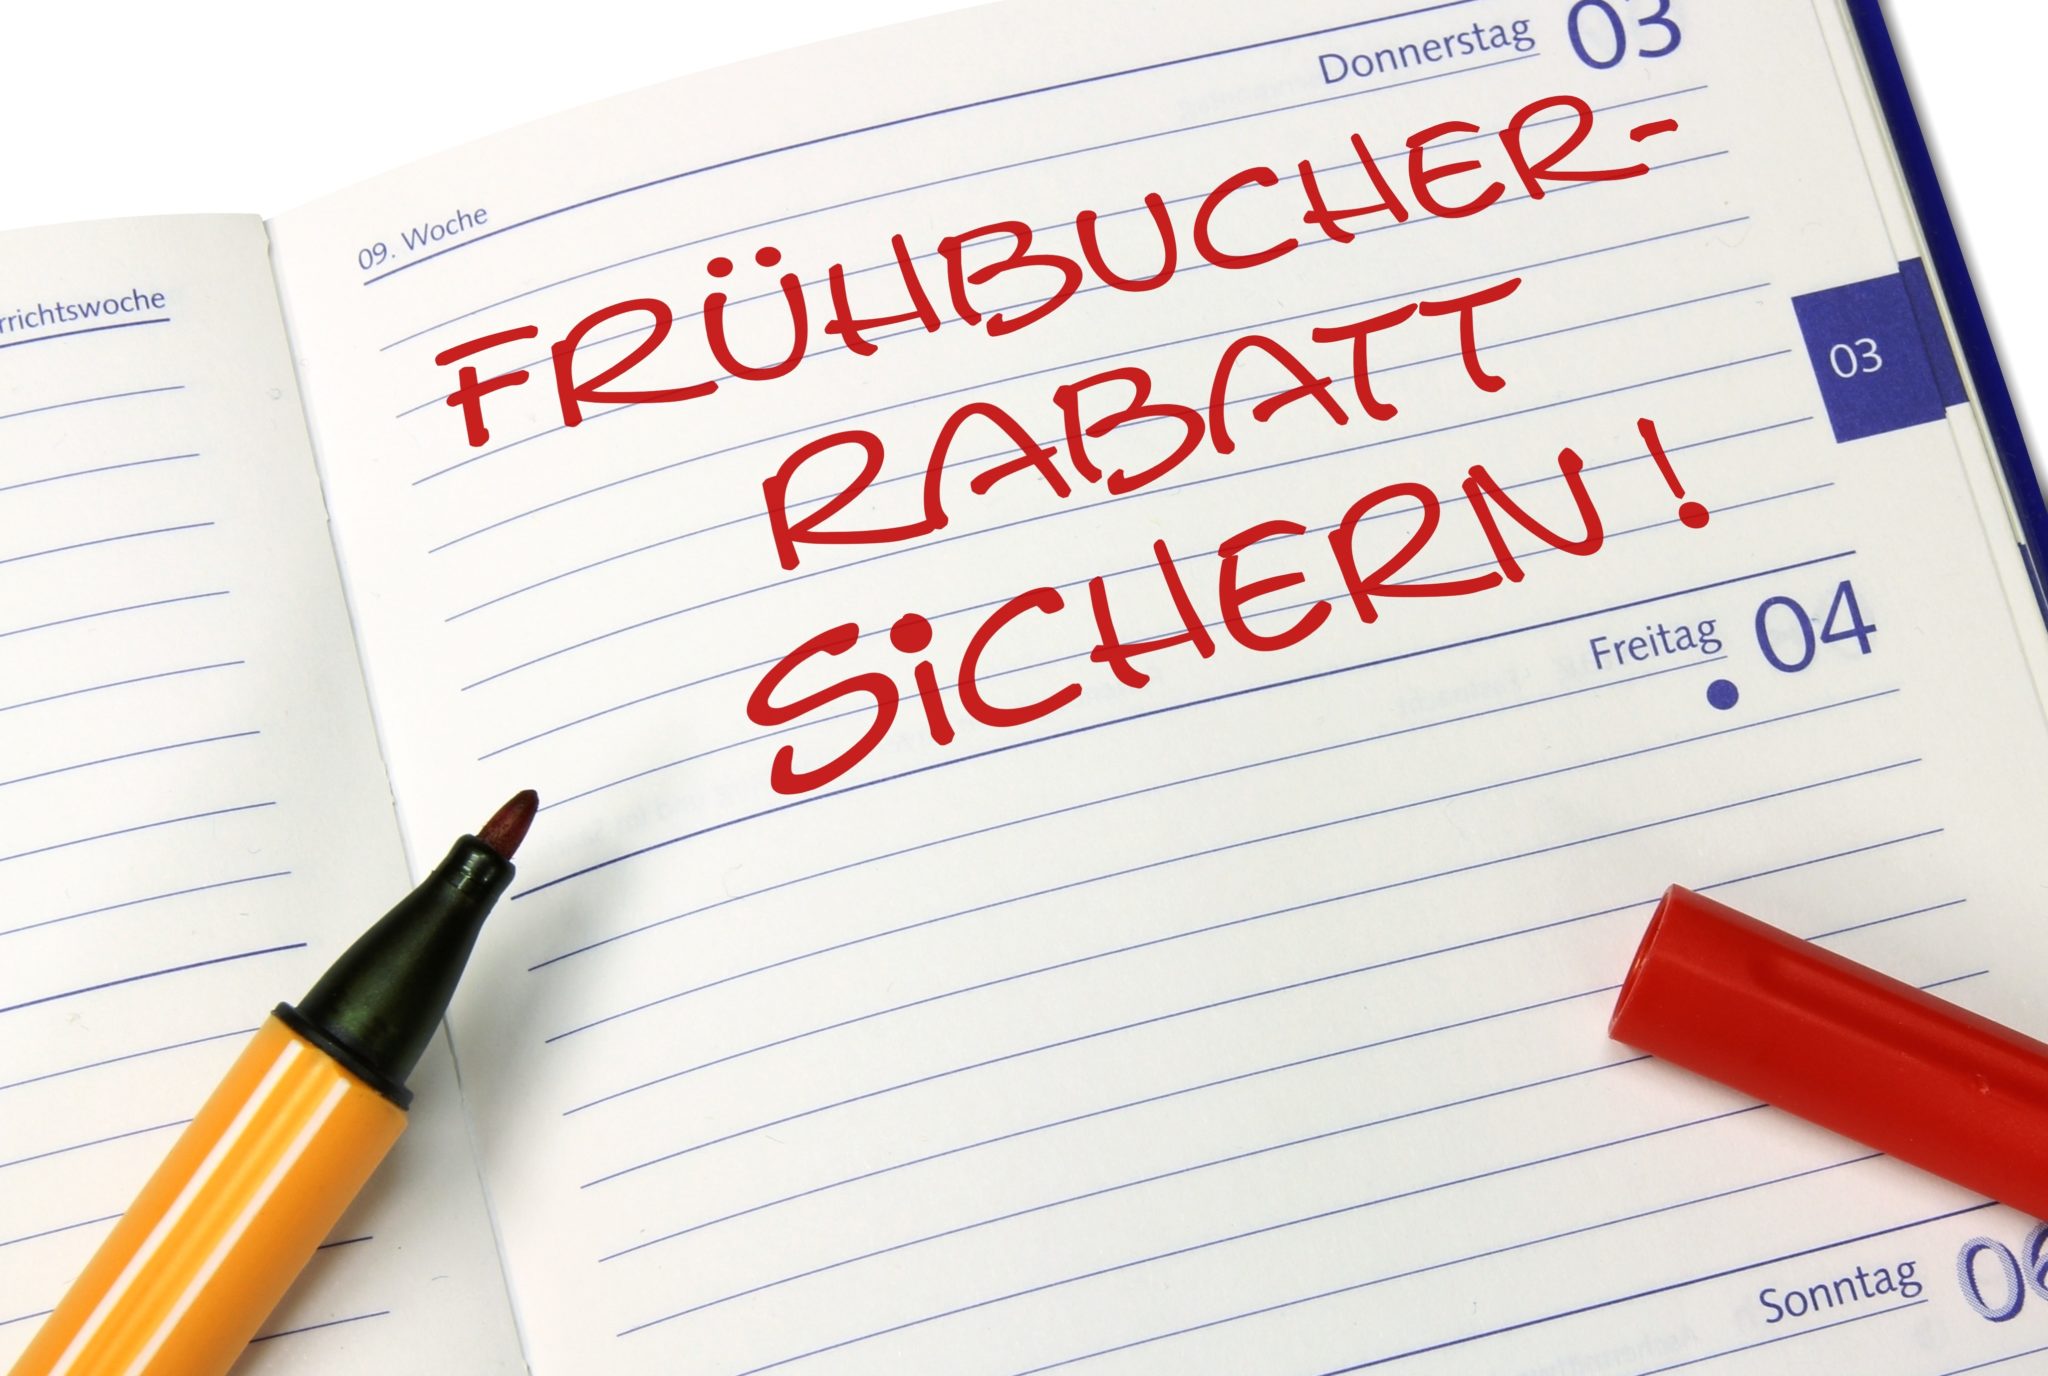 Donnerstag 03
09. Woche
FRÜHBUCHER-
RABATT
SiCHERN!
rrichtswoche
03
Freitag 04
Sonntag 06